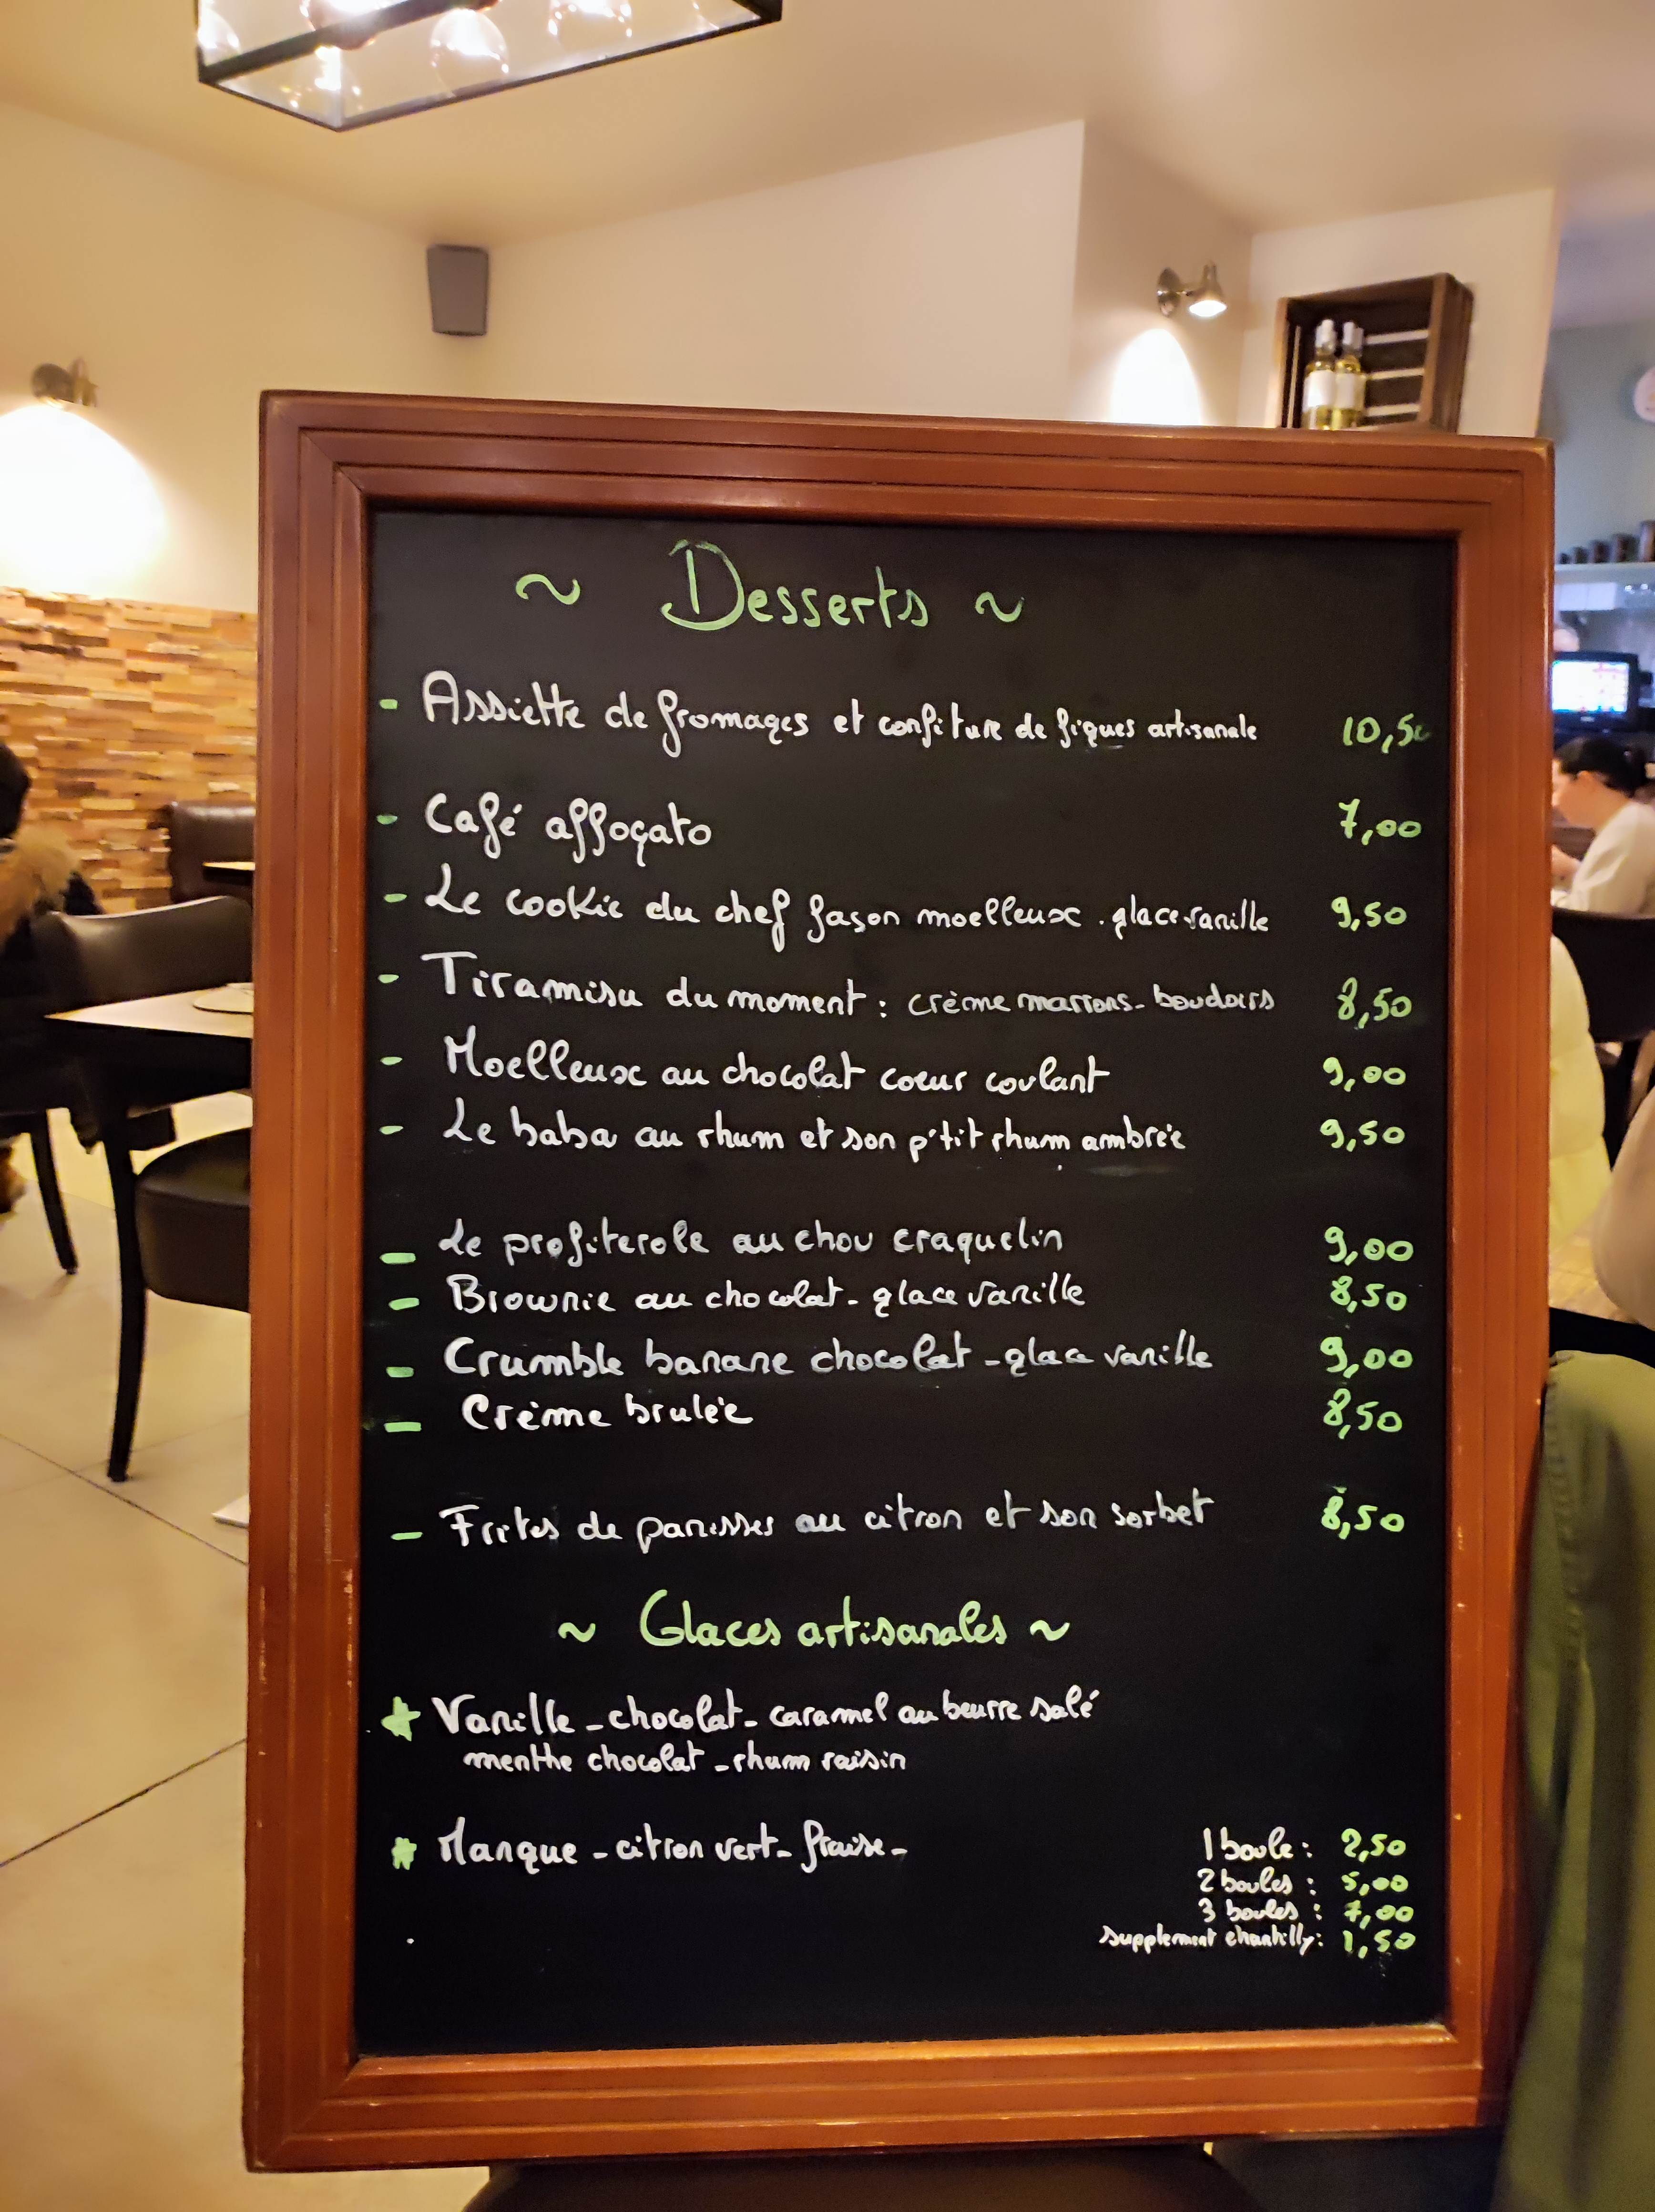 ~ Desserts ~
- Assiette de fromages et confiture de figues artisanale 10,50
- Café affogato 7,00
- Le cookie du chef façon moelleux . glace vanille 9,50
- Tiramisu du moment : crème marrons - boudoirs 8,50
- Moelleux au chocolat coeur coulant 9,00
- Le baba au rhum et son p'tit rhum ambrée 9,50
- Le profiterole au chou craquelin 9,00
- Brownie au chocolat - glace vanille 8,50
- Crumble banane chocolat - glace vanille 9,00
- Crème brulée 8,50
- Frites de panisses au citron et son sorbet 8,50
~ Glaces artisanales ~
Vanille - chocolat - caramel au beurre salé
menthe chocolat - rhum raisin
Mangue - citron vert - fraise -
1 boule : 2,50
2 boules : 5,00
3 boules : 7,00
supplement chantilly : 1,50